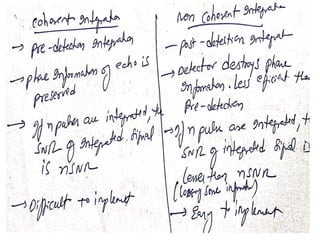 coherent Integration
→ Pre-detection Integration
→ phase Information of echo is
preserved
→ If n pulses are integrated, the
SNR of Integrated Signal
is nSNR
→ Difficult to implement
Non Coherent Integrat
→ Post-detection Integrat
→ Detector destroys phase
Information. Less efficient tha
Pre-detection
→ If n pulse are Integrated, t
SNR of integrated Signal i
lesser than nSNR
(loosing some informat)
→ Easy to implement